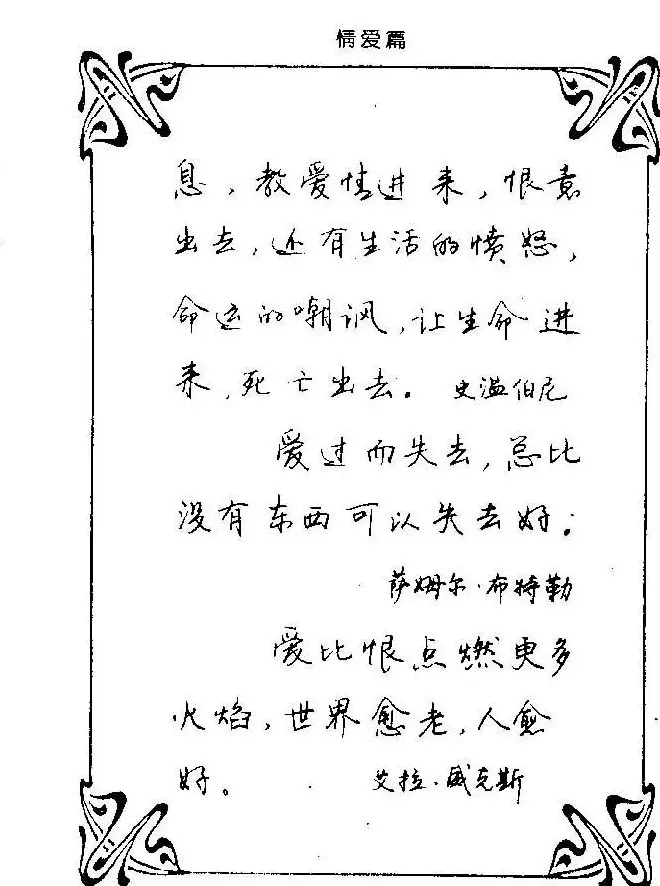 情爱篇
息，教爱情进来，恨意
出去，还有生活的愤怒，
命运的嘲讽，让生命进
来，死亡出去。 史溢伯尼
爱过而失去，总比
没有东西可以失去好。
萨姆尔·布特勒
爱比恨点燃更多
火焰，世界愈老，人愈
好。 艾拉·威克斯